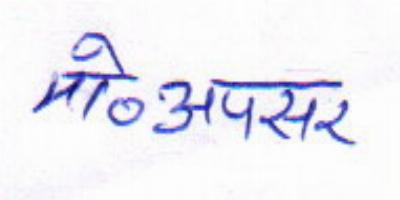 मो०अपसर